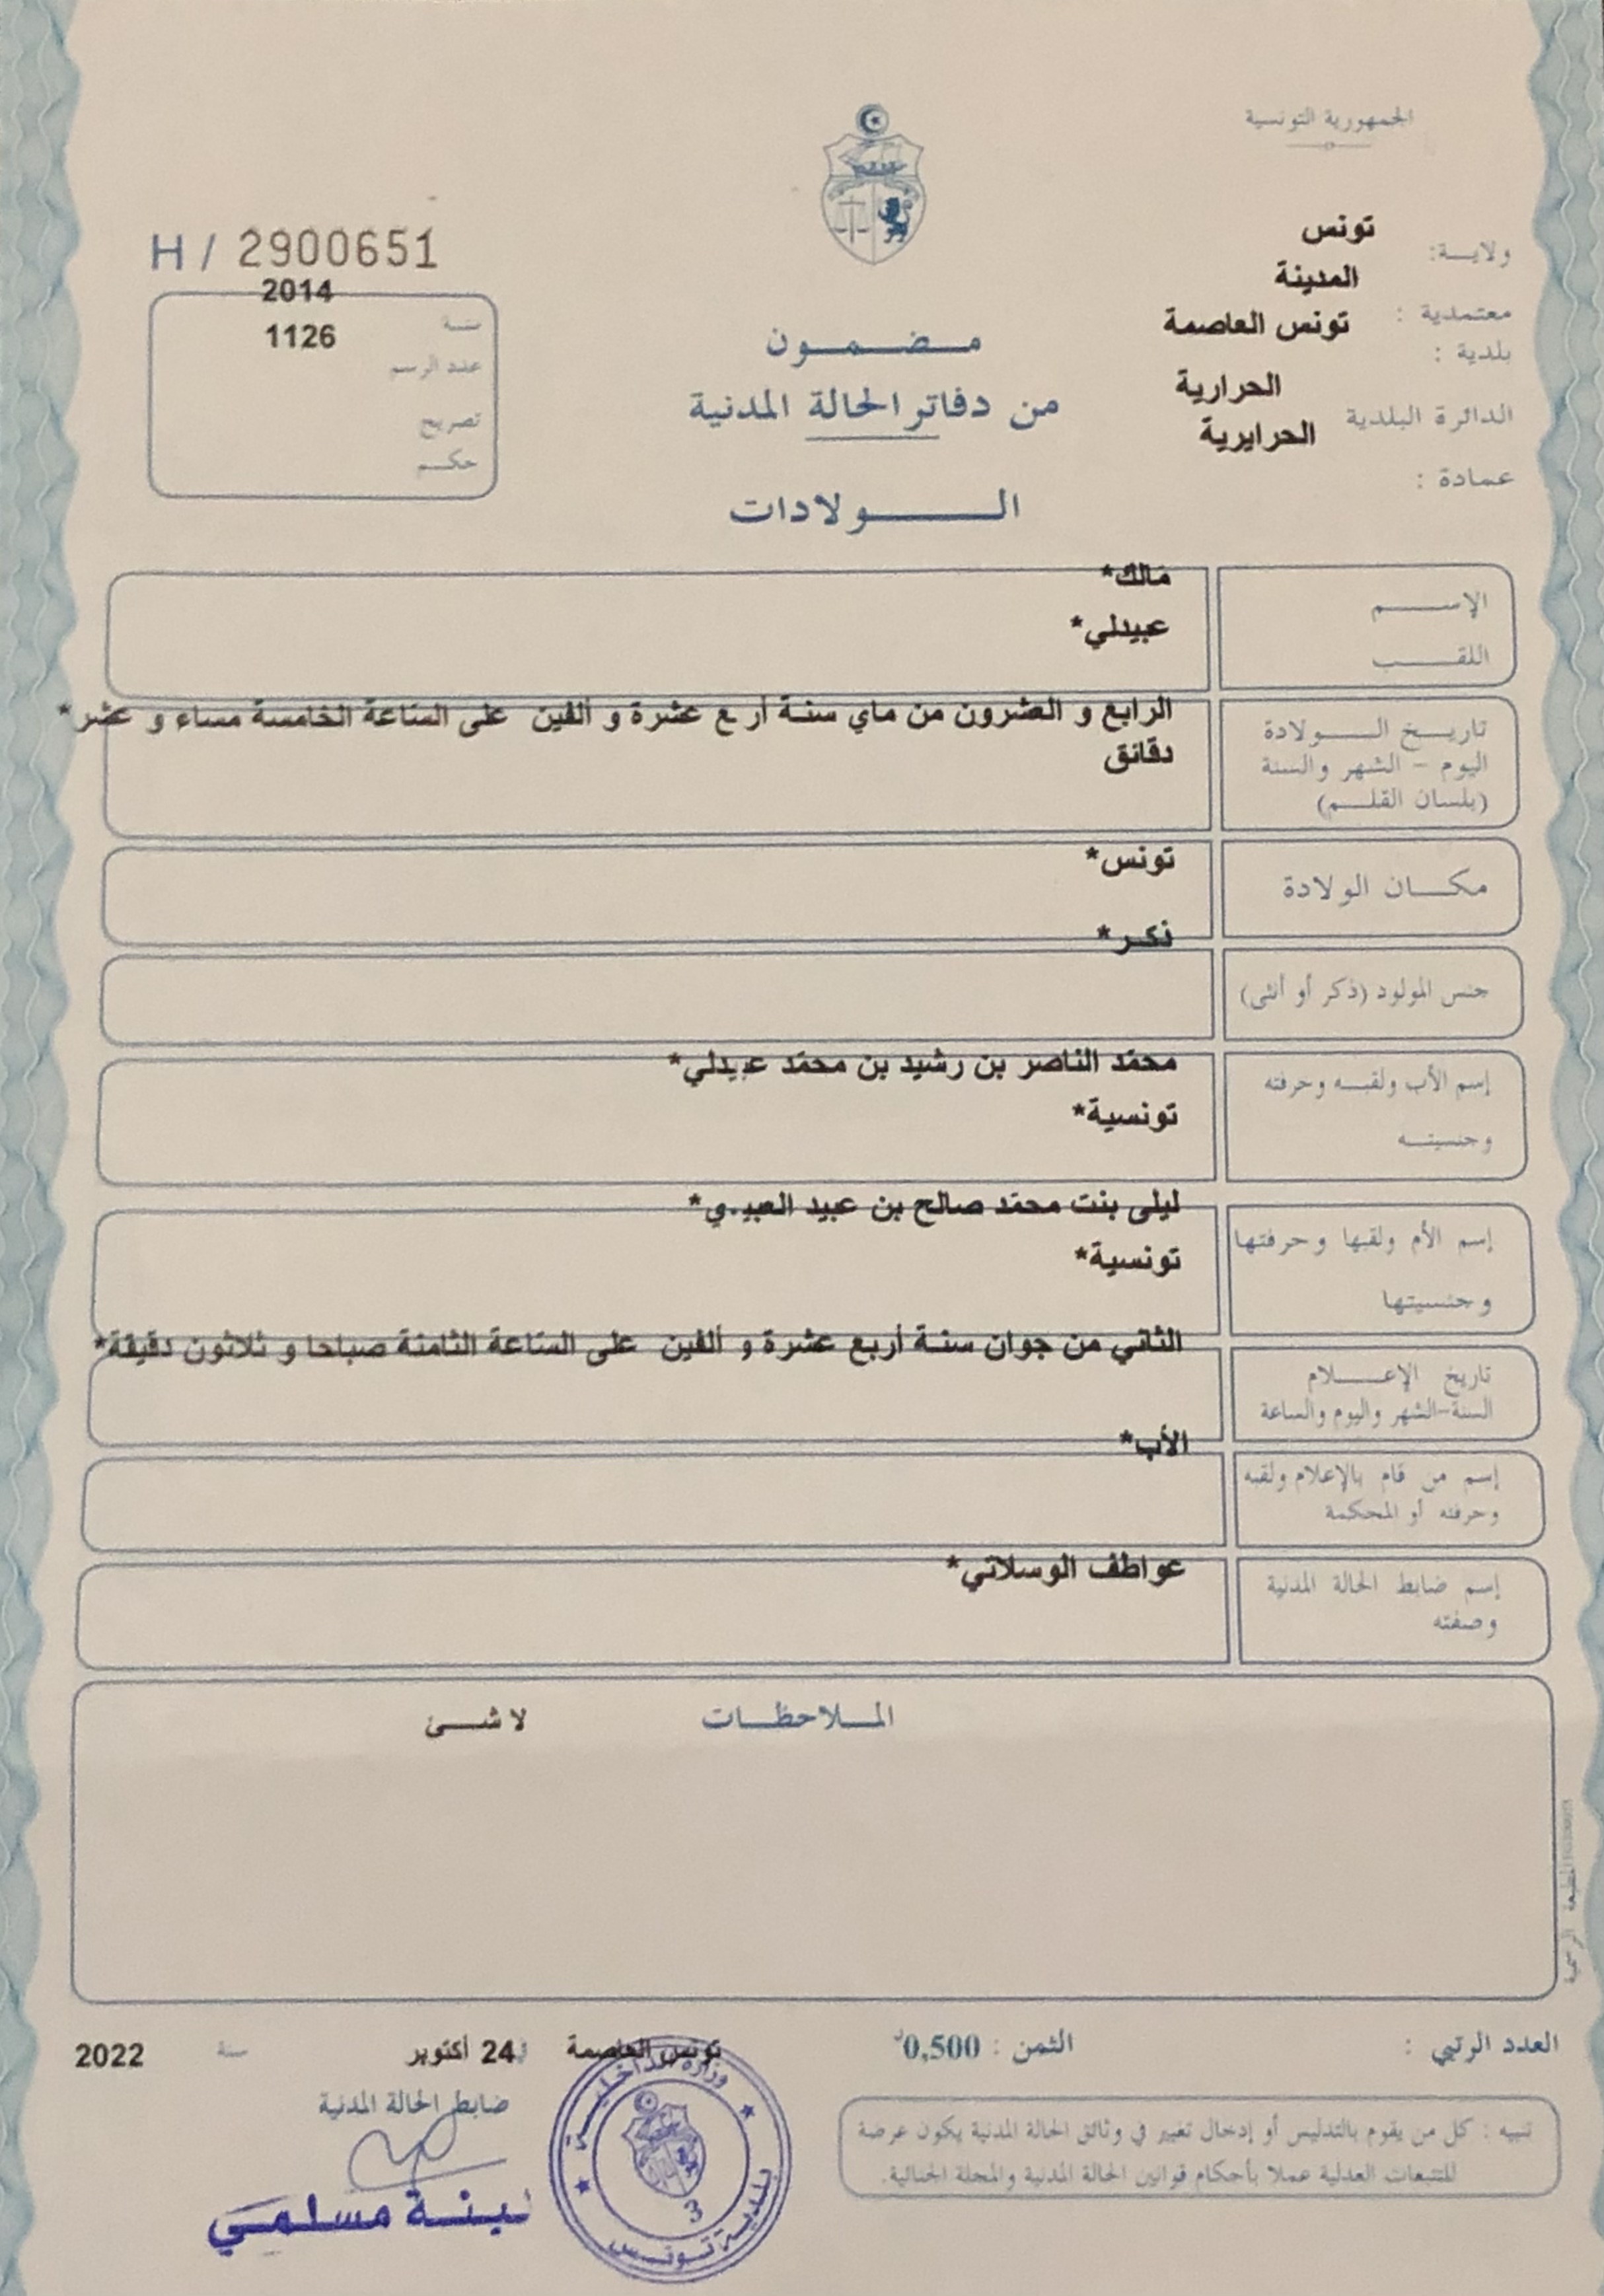 الجمهورية التونسية
ولايـــة: تونس
معتمدية : المدينة
بلدية : تونس العاصمة
الدائرة البلدية الحرارية
الحرايرية
عمادة :
H / 2900651
سنـة 2014
عدد الرسم 1126
تصريح
حكـــم
مـــضـــمـــون
من دفاتر الحالة المدنية
الــــــولادات
الإســــــم مالك*
اللقـــــب عبيدلي*
تاريـــخ الــــولادة
اليوم - الشهر والسنة
(بلسان القلـــم)
الرابع و العشرون من ماي سنـة أربع عشرة و ألفين على الساعة الخامسة مساء و عشر*
دقائق
مكـــان الولادة تونس*
جنس المولود (ذكر أو أنثى) ذكـر*
إسم الأب ولقبـــه وحرفته محمّد الناصر بن رشيد بن محمّد عبيدلي*
وجنسيتـــه تونسية*
إسم الأم ولقبها وحرفتها ليلى بنت محمّد صالح بن عبيد
وجنسيتها تونسية*
تاريخ الإعـــــلام
السنة-الشهر واليوم والساعة
الثاني من جوان سنـة أربع عشرة و ألفين على الساعة الثامنة صباحا و ثلاثون دقيقة*
إسم من قام بالإعلام ولقبه
وحرفته أو المحكمة
الأب*
إسم ضابط الحالة المدنية
وصفته
عواطف الوسلاتي*
المـــلاحظـــات لا شـــئ
المطبعة الرسمية
العدد الرتبي :
الثمن : 0,500
تونس العاصمة 24 أكتوبر سنـة 2022
ضابط الحالة المدنية
لبنـــة مسلمـــي
وزارة الداخليـــة
بلديـة تـونـس
3
تنبيه : كل من يقوم بالتدليس أو إدخال تغيير في وثائق الحالة المدنية يكون عرضة
للتتبعات العدلية عملا بأحكام قوانين الحالة المدنية والمجلة الجنائية.